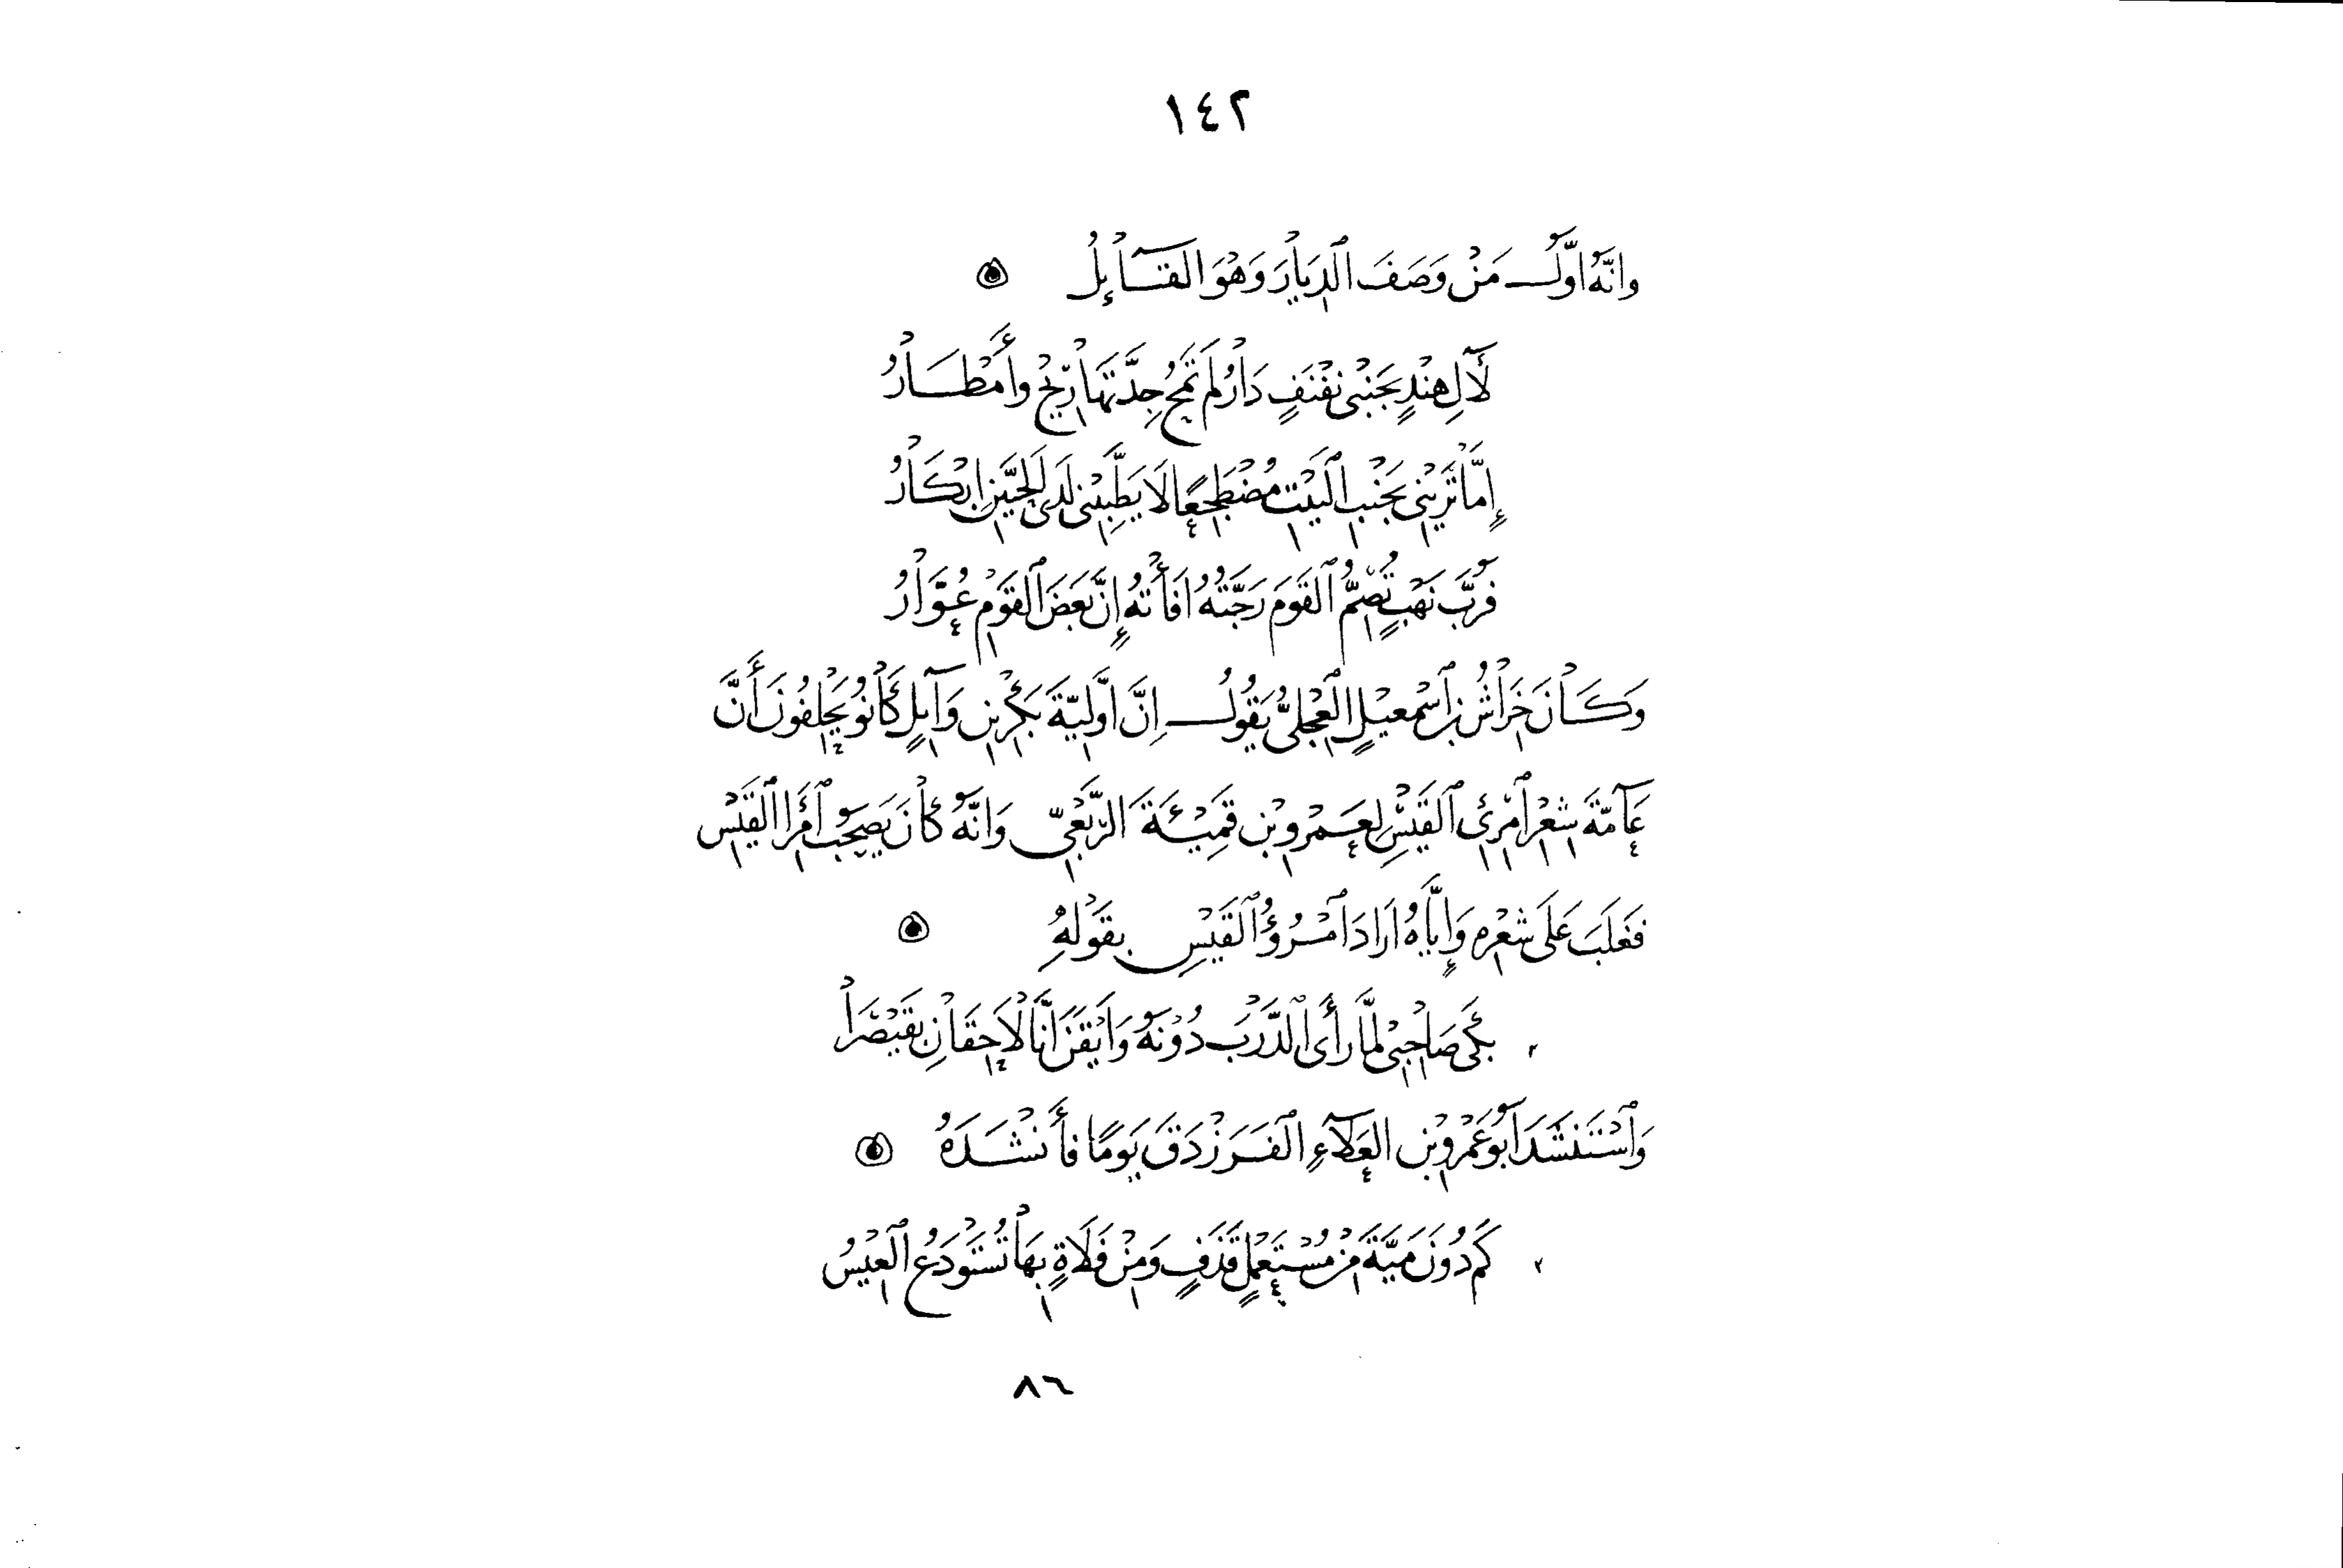 ١٤٢
وَانَّهُ اَوَّلُ مَنْ وَصَفَ الدِّيَارَ وَهُوَ القَائِلُ
لِآلِ هِنْدٍ بِجَنْبَيْ نَفْنَفٍ دَارُ لَمْ تَمْحُ جِدَّتَهَا رِيْحٌ وأَمْطَارُ
إِمَّا تَرَيْنِي بِجَنْبِ البَيْتِ مُضْطَجِعًا لَا يَطَّبِيْنِي لَدَى الحَيَّيْنِ ابْكَارُ
فَرُبَّ نَهْبٍ تُصِمُّ القَوْمَ رَجَّتُهُ اَفَأْتُهُ إِنَّ بَعْضَ القَوْمِ عُوَّارُ
وَكَانَ خِرَاشُ بْنُ اسْمعِيْلٍ العِجْلِيُّ يَقُولُ اِنَّ اَوَّلِيَّةَ بَكْرِ بْنِ وَآئِلٍ كَانُو يَحْلِفُونَ أَنَّ
عَآمَّةَ شِعْرِ امْرِئِ القَيْسِ لِعَمْرِو بْنِ قَمِيْئَةَ الرَّبَعِيِّ وَانَّهُ كَانَ يَصْحَبُ امْرَأَ القَيْسِ
فَغَلَبَ عَلَى شِعْرِهِ وَإِيَّاهُ اَرَادَ امْرُؤُ القَيْسِ بِقَوْلِهِ
بَكَى صَاحِبِي لَمَّا رَأَى الدَّرْبَ دُوْنَهُ وَايْقَنَ اَنَّا لَاحِقَانِ بِقَيْصَرَا
وَاسْتَنْشَدَ ابُو عَمْرِو بْنِ العَلَآءِ الفَرَزْدَقَ يَوْمًا فَأَنْشَدَهُ
كَمْ دُوْنَ مَيَّةَ مِنْ مُسْتَعْمَلٍ قَذَفٍ وَمِنْ فَلَاةٍ بِهَا تُسْتَوْدَعُ العِيْسُ
٨٦